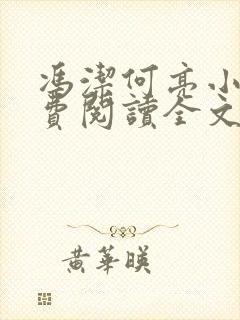 馮潔何亮小
費閱讀全文
黃華暎